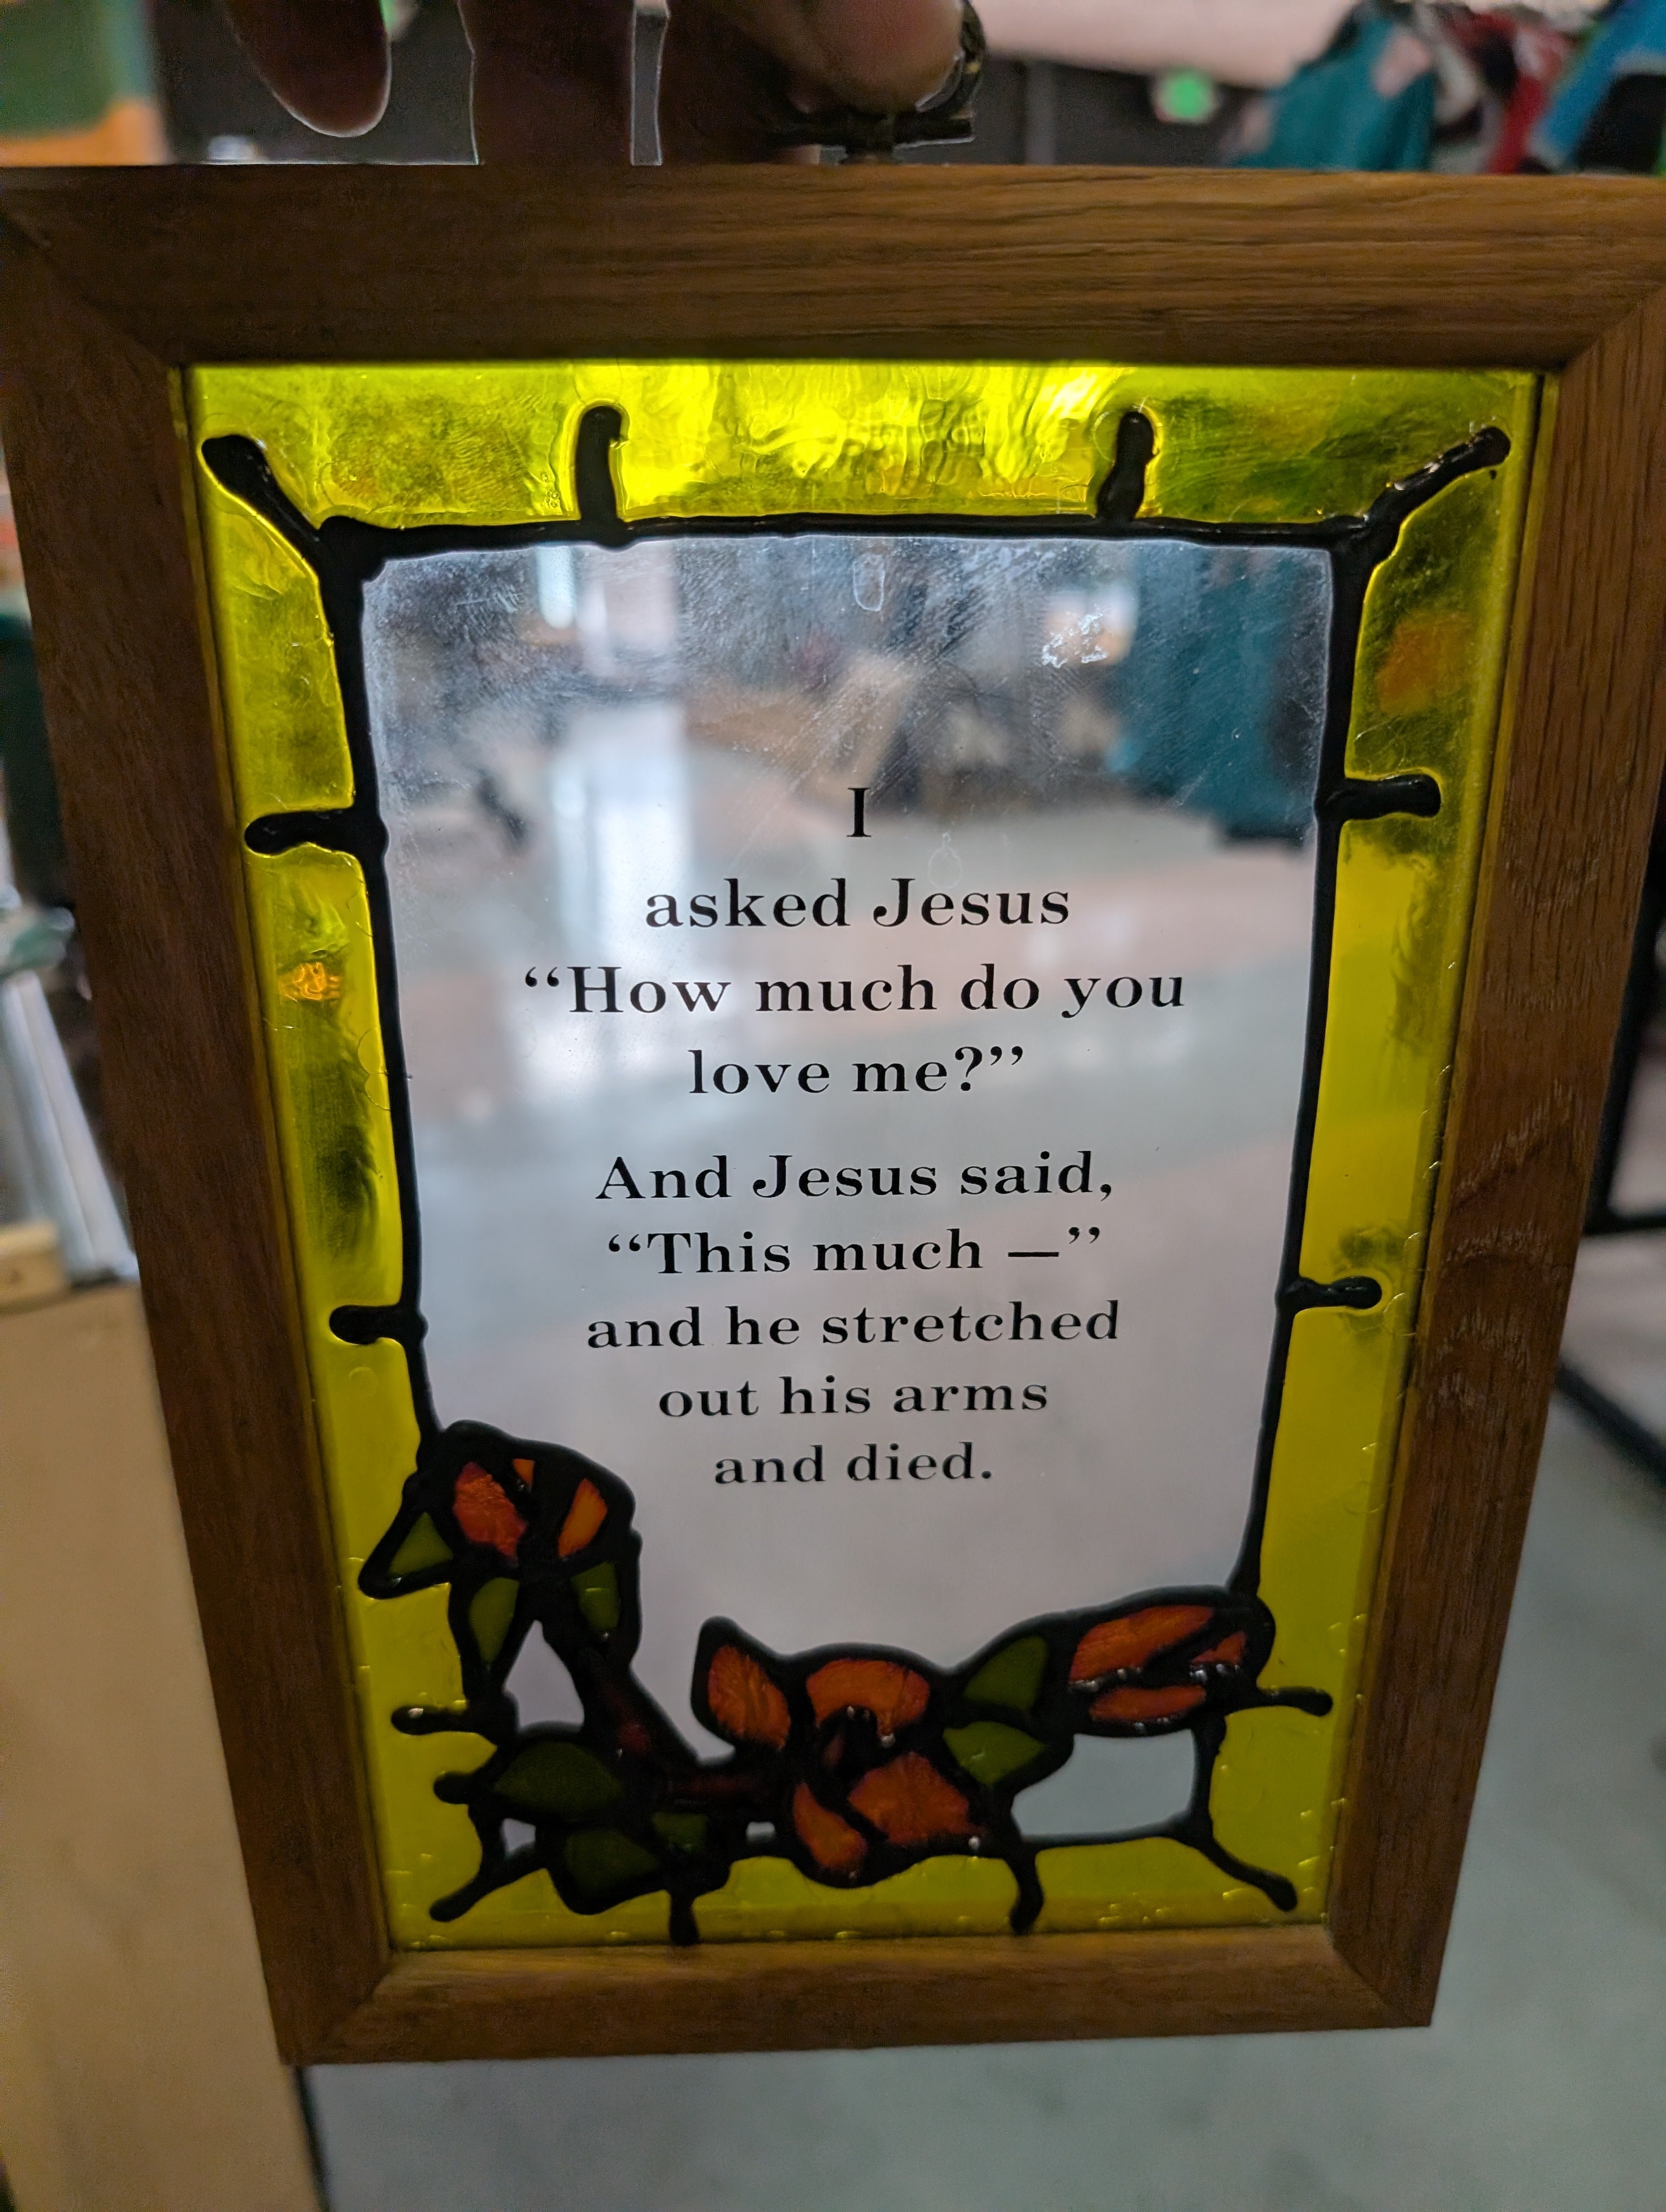 I
asked Jesus
“How much do you
love me?”
And Jesus said,
“This much —”
and he stretched
out his arms
and died.